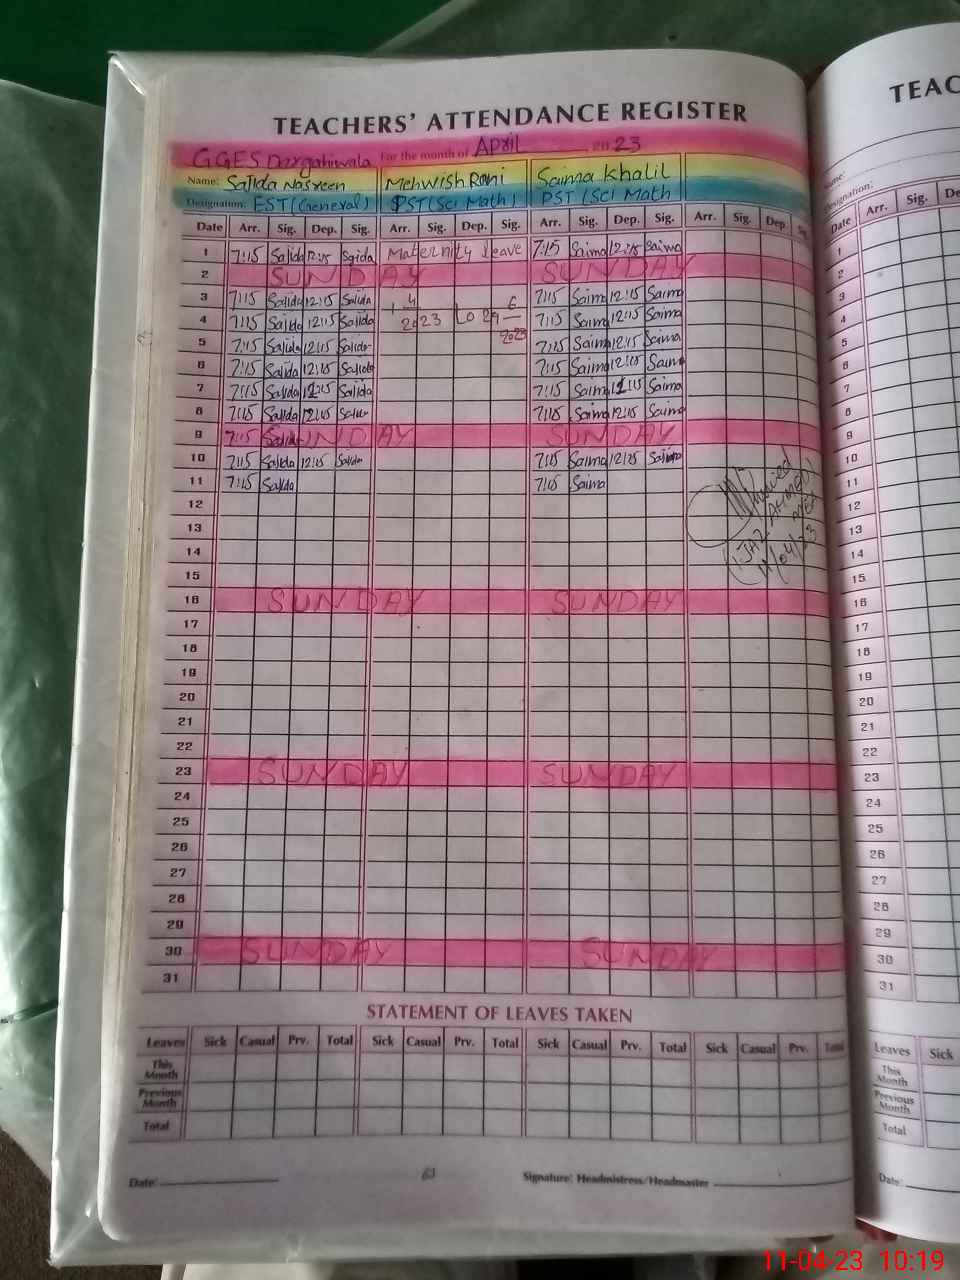 TEACHERS' ATTENDANCE REGISTER
GGES Dargahiwala For the month of April 2023
Name: Sajida Nasreen Mehwish Rani Saima Khalil
Designation: EST (General) PST (Sci Math) PST (Sci Math
Date Arr. Sig. Dep. Sig. Arr. Sig. Dep. Sig. Arr. Sig. Dep. Sig. Arr. Sig. Dep.
1 7:15 Sajida 12:15 Sajida Maternity leave 7:15 Saima 12:15 Saima
2 SUNDAY SUNDAY
3 7:15 Sajida 12:15 Sajida 1 4 6 7:15 Saima 12:15 Saima
4 7:15 Sajida 12:15 Sajida 2023 to 29 2023 7:15 Saima 12:15 Saima
5 7:15 Sajida 12:15 Sajida 7:15 Saima 12:15 Saima
6 7:15 Sajida 12:15 Sajida 7:15 Saima 12:15 Saima
7 7:15 Sajida 12:15 Sajida 7:15 Saima 12:15 Saima
8 7:15 Sajida 12:15 Sajida 7:15 Saima 12:15 Saima
9 7:15 Sajida NDAY SUNDAY
10 7:15 Sajida 12:15 Sajida 7:15 Saima 12:15 Saima
11 7:15 Sajida 7:15 Saima
12
13
14
15
16 SUNDAY SUNDAY
17
18
19
20
21
22
23 SUNDAY SUNDAY
24
25
26
27
28
29
30 SUNDAY SUNDAY
31
IJAZ AHMED
MEA
11/04/23
STATEMENT OF LEAVES TAKEN
Leaves Sick Casual Prv. Total Sick Casual Prv. Total Sick Casual Prv. Total Sick Casual Prv. Total
This Month
Previous Month
Total
Date: Signature: Headmistress/Headmaster
TEAC
Name:
Designation:
Date Arr. Sig. De
1
2
3
4
5
6
7
8
9
10
11
12
13
14
15
16
17
18
19
20
21
22
23
24
25
26
27
28
29
30
31
Leaves Sick
This Month
Previous Month
Total
Date:
11-04-23 10:19